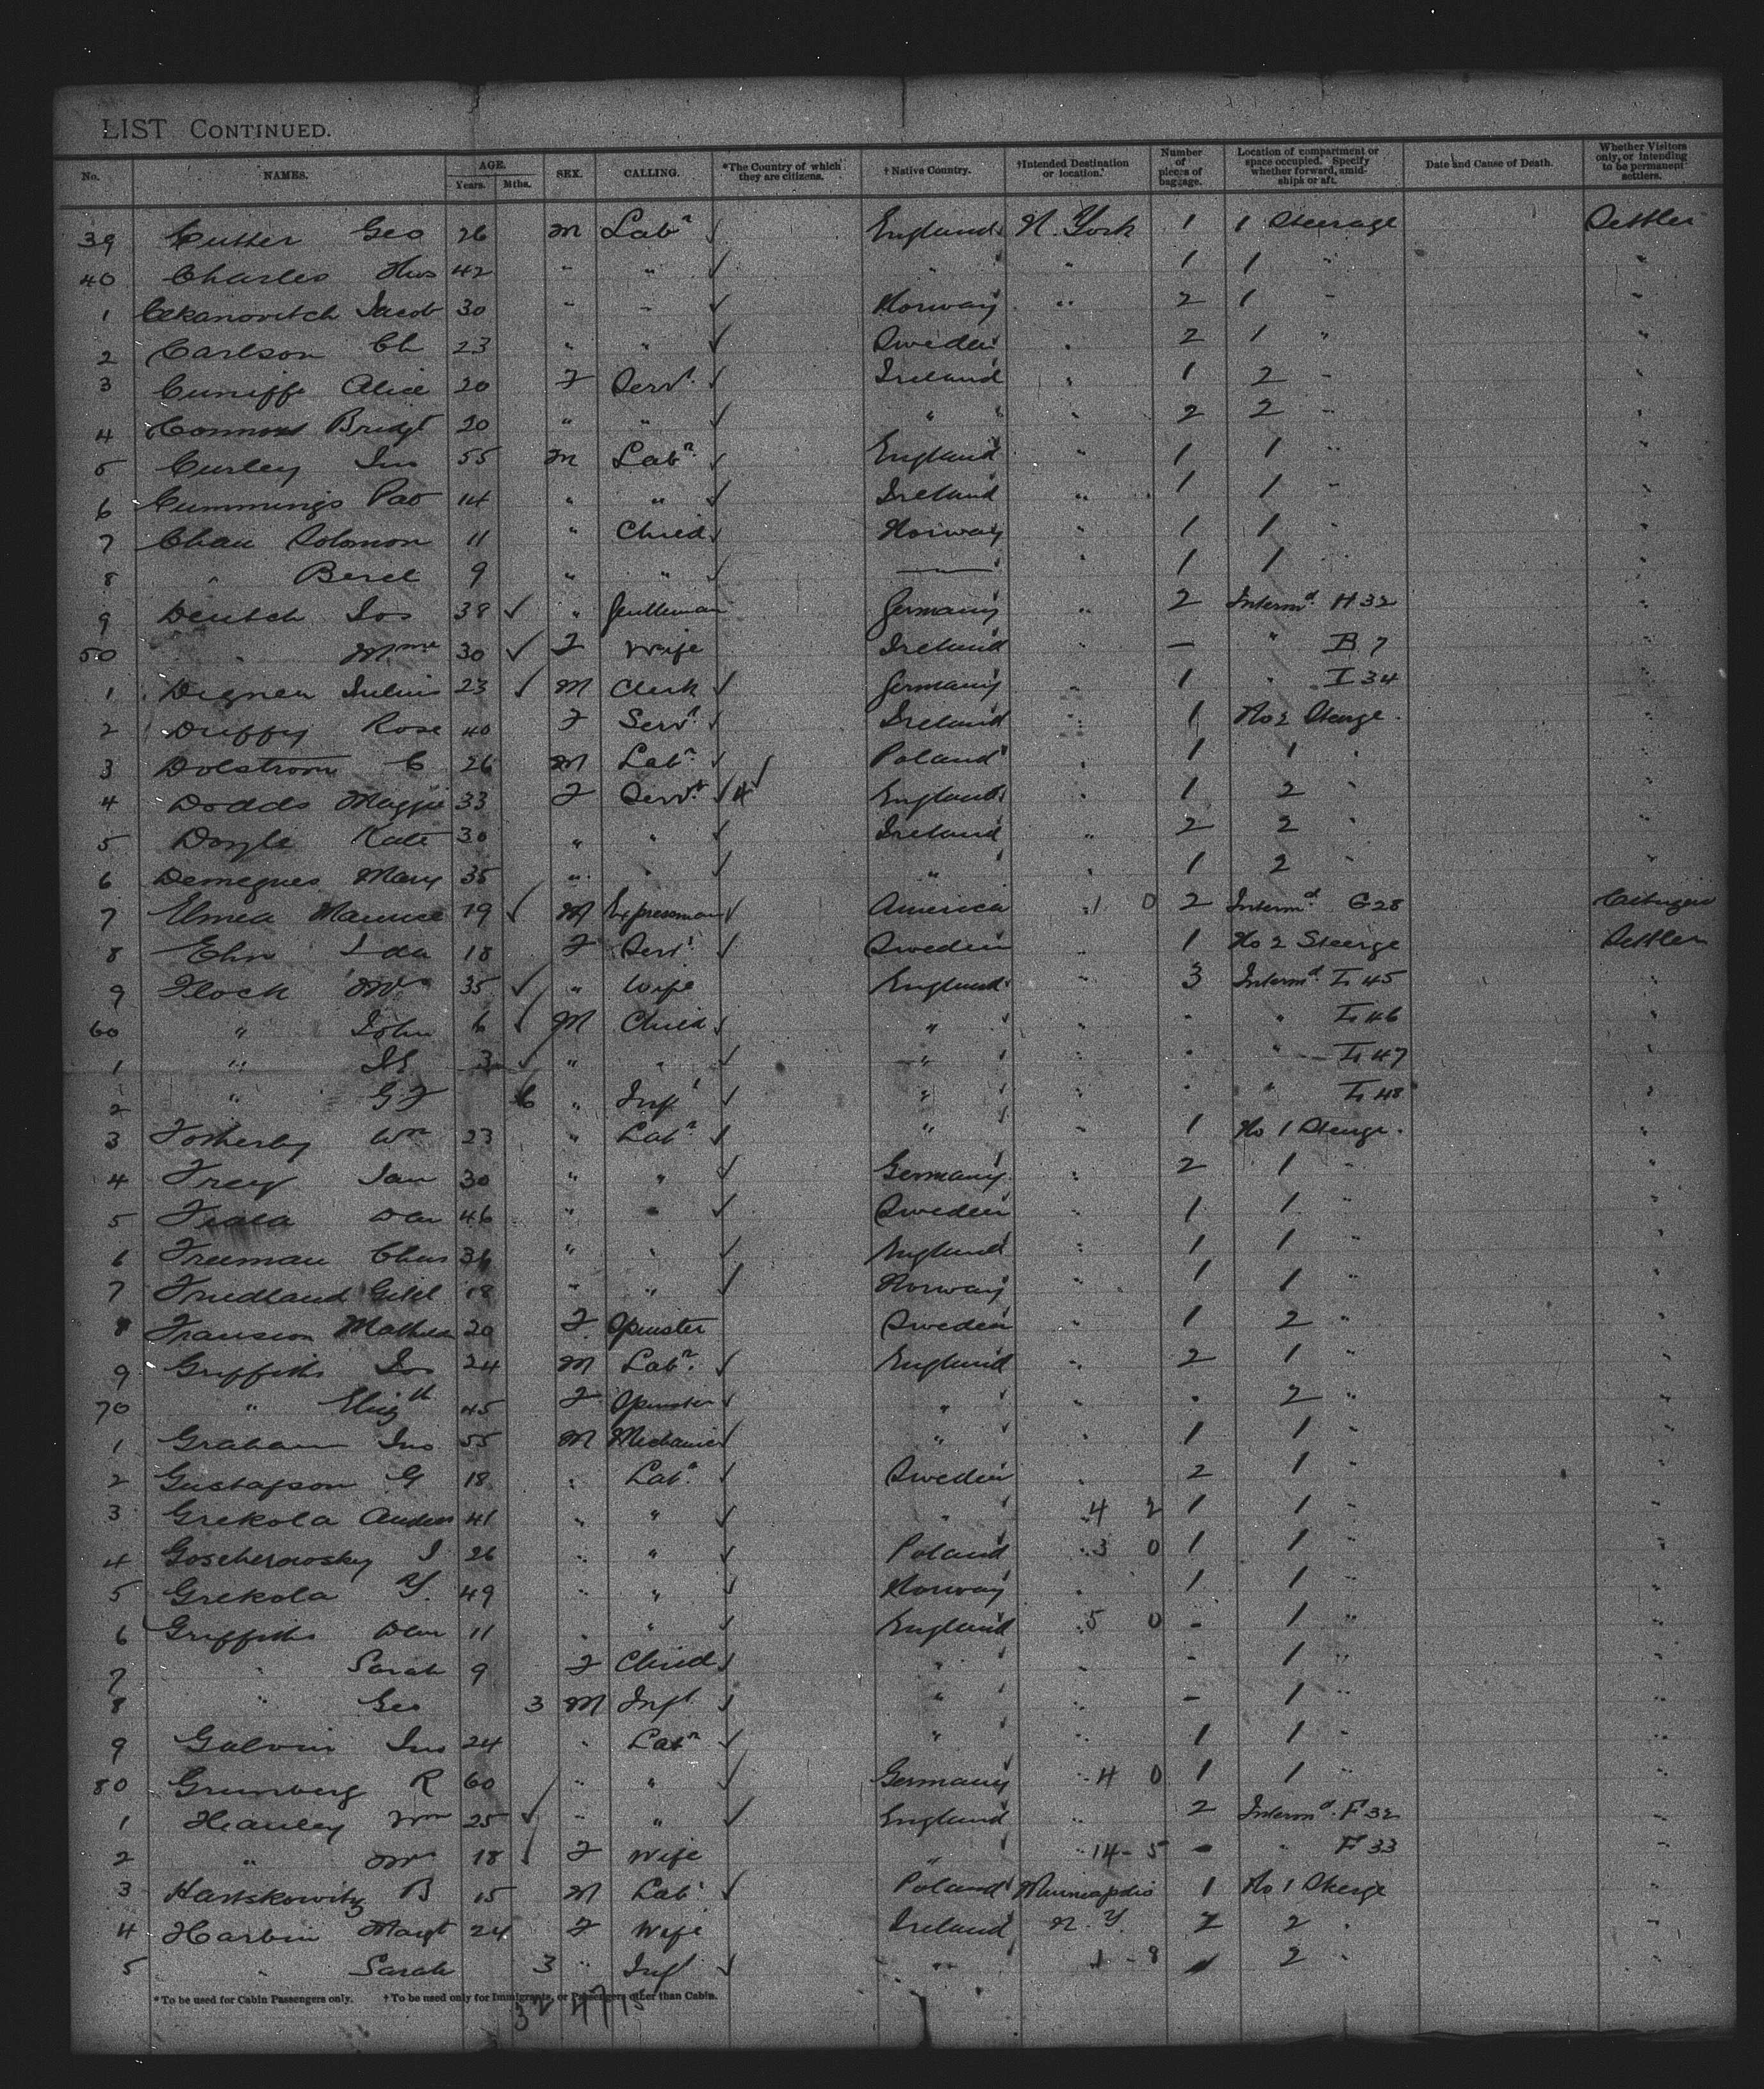 LIST CONTINUED.
No. NAMES. AGE. Years. Mths. SEX. CALLING. *The Country of which they are citizens. † Native Country. †Intended Destination or location. Number of pieces of baggage. Location of compartment or space occupied. Specify whether forward, amidships or aft. Date and Cause of Death. Whether Visitors only, or intending to be permanent settlers.
39 Cutter Geo 26 M Labr England N. York 1 1 Steerage Settler
40 Charles Thos 42 " " " " 1 1 " "
1 Cekanovitch Jacob 30 " " Norway " 2 1 " "
2 Carlson Ch 23 " " Sweden " 2 1 " "
3 Cuniffe Alice 20 F Servt Ireland " 1 2 " "
4 Connors Bridgt 20 " " " " 2 2 " "
5 Curley Jno 55 M Labr England " 1 1 " "
6 Cummings Pat 14 " " Ireland " 1 1 " "
7 Chau Solomon 11 " Child Norway " 1 1 " "
8 " Berel 9 " " — " 1 1 " "
9 Deutsch Jos 38 " Gentleman Germany " 2 Intermd H 32 "
50 " Mme 30 F Wife Ireland " — " B 7 "
1 Dignen Julius 23 M Clerk Germany " 1 " I 34 "
2 Duffy Rose 40 F Servt Ireland " 1 No 2 Steerge "
3 Dolstrom C 26 M Labr Poland " 1 1 " "
4 Dodds Maggie 33 F Servt 4 England " 1 2 " "
5 Doyle Kate 30 " " Ireland " 2 2 " "
6 Demegnes Mary 35 " " " " 1 2 " "
7 Elmea Maurice 19 M Expressman America " 1 0 2 Intermd G 28 Citizen
8 Ehn Ida 18 F Servt Sweden " 1 No 2 Steerge Settler
9 Flock Mrs 35 " Wife England " 3 Intermd I 45 "
60 " John 6 M Child " " " " I 46 "
1 " 3 " " " " " " I 47 "
2 " G F 6 " Inft " " " " I 48 "
3 Fotherby Wm 23 " Labr " " 1 No 1 Steerge "
4 Frey Jan 30 " " Germany " 2 1 " "
5 Dan 46 " " Sweden " 1 1 " "
6 Freeman Chas 36 " " England " 1 1 " "
7 Friedland 18 " " Norway " 1 1 " "
8 Franson Mathilda 20 F Spinster Sweden " 1 2 " "
9 Griffiths Jos 24 M Labr England " 2 1 " "
70 " Elizth 45 F Spinster " " " 2 " "
1 Graham Jno 55 M Mechanic " " 1 1 " "
2 Gustafson G 18 " Labr Sweden " 2 1 " "
3 Grekola Anders 41 " " " " 4 2 1 1 " "
4 Goschernosky J 26 " " Poland " 3 0 1 1 " "
5 Grekola Y. 49 " " Norway " 1 1 " "
6 Griffiths Dan 11 " " England " 5 0 - 1 " "
7 " Sarah 9 F Child " " - 1 " "
8 " Geo 3 M Inft " " - 1 " "
9 Galvin Jno 24 " Labr " " 1 1 " "
80 Grunberg R 60 " " Germany " 4 0 1 1 " "
1 Hanley Wm 25 " " England " 2 Intermd F 32 "
2 " Mrs 18 F Wife " " 14 - 5 - " F 33 "
3 Hartskowitz B 15 M Labr Poland Minneapolis 1 No 1 Steerge "
4 Harbin Margt 24 F Wife Ireland N. Y. 2 2 " "
5 " Sarah 3 " Inft " 1 - 8 2 " "
*To be used for Cabin Passengers only. †To be used only for Immigrants, or Passengers other than Cabin.
32 47